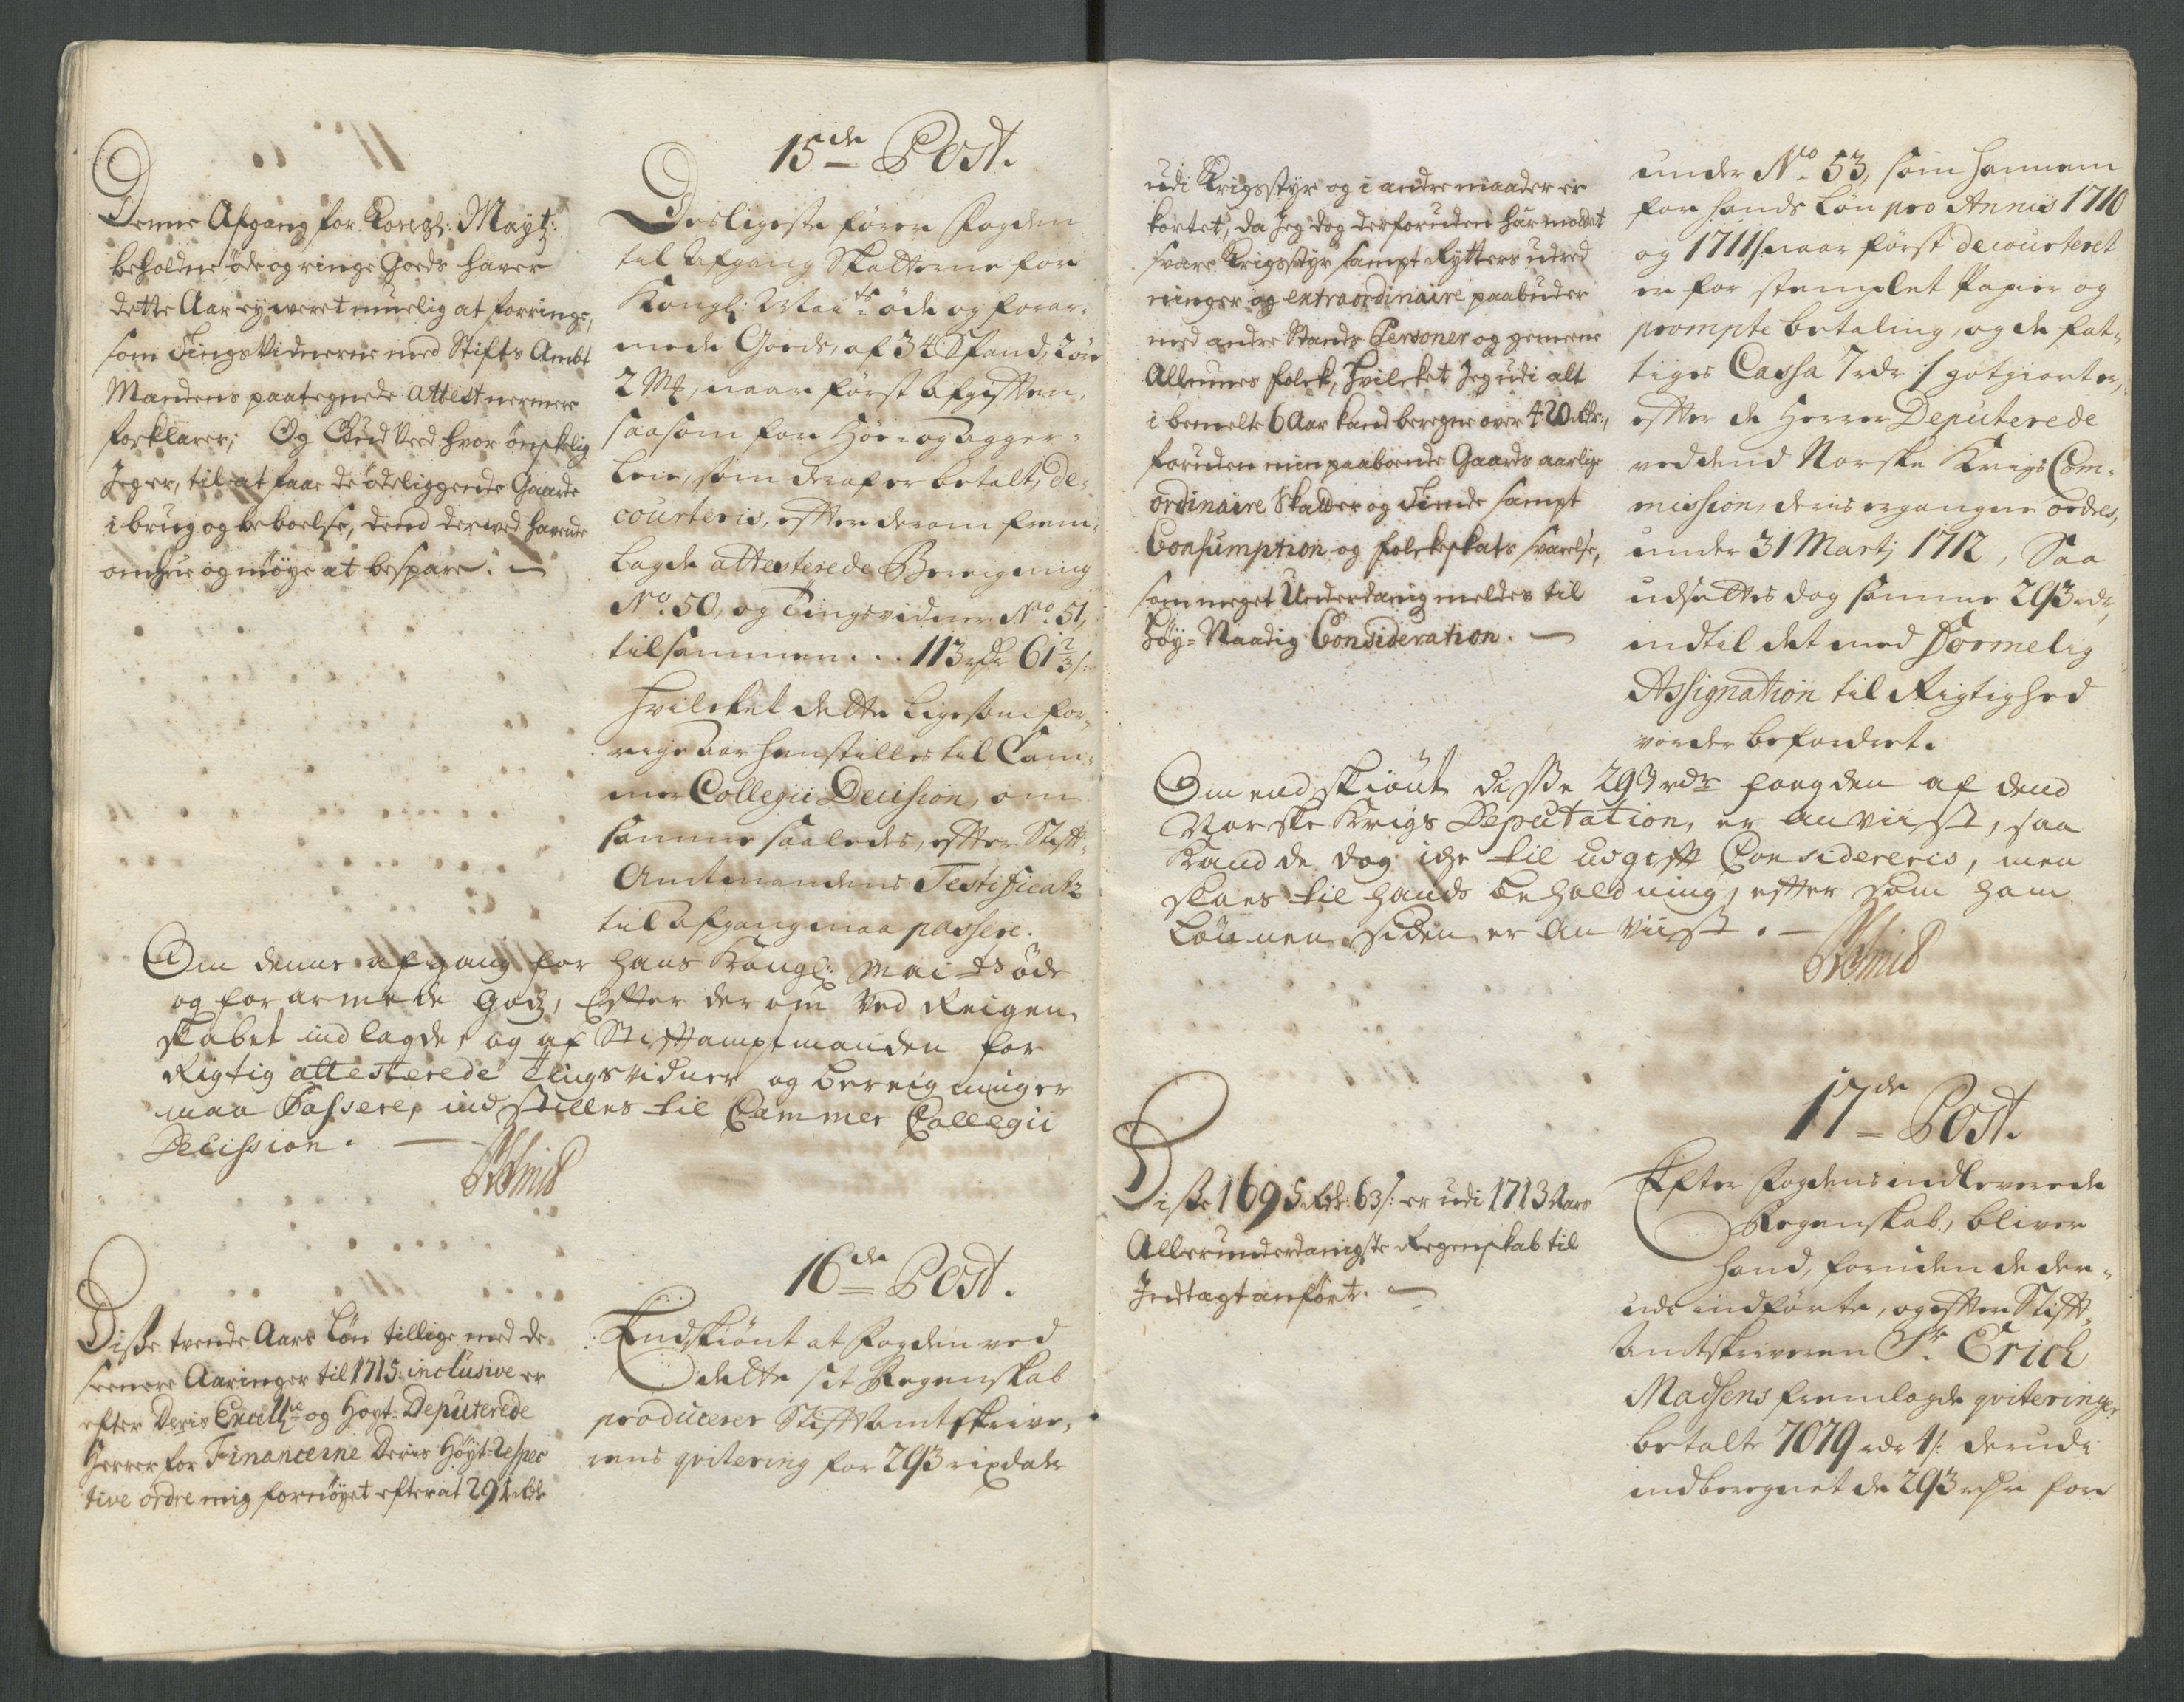 Denne Afgang for Kongl: Mayt:
beholdne øde og ringe Goeds haver
dette Aar ey weret muelig at forringe,
som Tings Vidnerne med Stifts Ambt
Mandens paategnede attest nermere
forklarer; Og Gud Veed hvor ønskelig
Jeg er, til at faae de ødeliggende Gaarde
i brug og beboelse, dend derved havende
omhue og møye at bespare. —
15de Post.
Desligeste fører Fogden
til Afgang Skatterne for
Kongl: Maits øde og forar-
mede Goeds, af 34 Spand, 2 øre
2 Mk, naar først Afgifften,
saasom for Hör- og agger-
leie, som deraf er betalt, de-
courteris, effter derom frem-
lagde attesterede Bereigning
No. 50, og Tingsvidner No. 51,
tilsammen... 113 rdr 61 2/3 s:
Hvilcket dette ligesom for-
rige aar henstilles til Cam-
mer Collegii Decision, om
samme saaledes, effter Stifft-
Amtmandens Testificatz
til Afgang maa passere.
Om denne afgang for hans Kongl: Maits øde
og forarmede godz, Effter derom Ved Reigen-
skabet indlagde, og af Stifftamptmanden for
Rigtig attesterede Tingsvidner og bereigninger
maa Passere, indstilles til Cammer Collegii
Decission. —
16de Post.
Disse tvende Aars Løn tillige med de
seenere Aaringer til 1715: inclusive er
efter Deris Excellce og Høyt-Deputerede
Herrer for Financerne Deris Høyt-Respec
tive ordre mig fornøyet efter at 291 Rdr
Endskiönt at Fogden ved
dette sit Regenskab
producerer Stifftamtskrive-
rens qvitering for 293 rixdaler
udi Krigsstyr og i andre maader er
kortet, da Jeg dog derforuden har maattet
svare Krigsstyr sampt Rytters udred
ninger og extraordinaire paabuder
med andre Stands Personer og gemeene
Allmues folck, Hvilcket Jeg udi alt
i bemelte 6 Aar kand beregne over 420 Rdr,
foruden min paaboende Gaards aarlige
ordinaire Skatter og Tiende sampt
Consumption og folckeskats svarelse,
som meget Underdanig meldes til
Høy-Naadig Consideration. —
under No. 53, som hannem
for hands Løn pro Annis 1710
og 1711 /: naar først decourteret
er for stemplet Papier og
prompte betaling, og de fat-
tiges Cassa 7 rdr :/ godtgiort er,
effter de Herrer Deputerede
ved dend Norske Krigs Com-
mission, deris ergangne ordre,
under 31 Martj 1712, Saa
udsettes dog samme 293 rdr,
indtil det med Formelig
Assignation til Rigtighed
vorder befordret.
Om endskiönt disse 293 rdr fogden af dend
Norske Krigs Deputation, er anviist, saa
Kand de dog icke til udgifft Considereris, men
slaaes til hands beholdning, efter som ham
Lönnen siden er anviist. —
17de Post.
Disse 1695 Rdr: 63 s: er udi 1713 Aars
Allerunderdanigste Regenskab til
Indtægt anført. —
Efter Fogdens indleverede
Regenskab, bliver
hand, foruden de der-
udi indførte, og effter Stifft-
Amtskriveren Sr. Erich
Madsens fremlagde qviteringer
betalte 7079 rdr 4 s: derudi
indberegnet de 293 rdr for